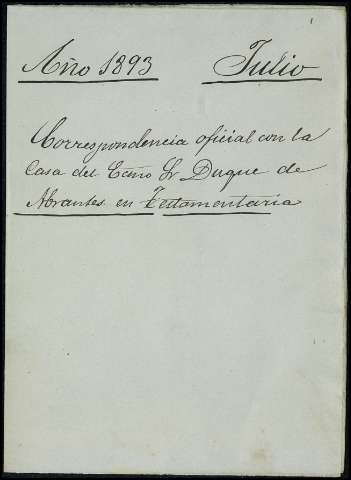 Año 1893 Julio
Correspondencia oficial con la
Casa del Ecmo Sr Duque de
Abrantes en Testamentaria